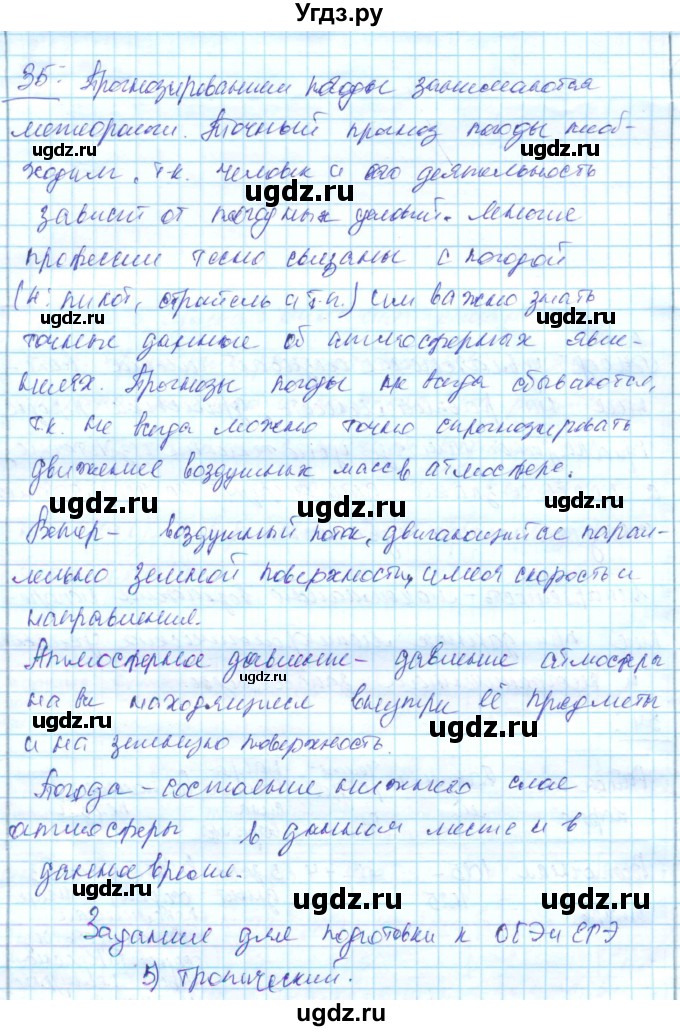 Угдз.ру
35. Прогнозированием погоды занимаются
метеорологи. Точный прогноз погоды необ-
ходим, т.к. человек и его деятельность
зависит от погодных условий. Многие
профессии тесно связаны с погодой
(н: пилот, строитель и т.п.) им важно знать
точные данные об атмосферных явле-
ниях. Прогнозы погоды не всегда сбываются,
т.к. не всегда можно точно спрогнозировать
движение воздушных масс в атмосфере.
Ветер - воздушный поток, двигающийся парал-
лельно земной поверхности, имея скорость и
направления.
Атмосферное давление - давление атмосферы
на все находящиеся внутри её предметы
и на земную поверхность.
Погода - состояние нижнего слоя
атмосферы в данном месте и в
данное время.
Задание для подготовки к ОГЭ и ЕГЭ
5) Тропический.